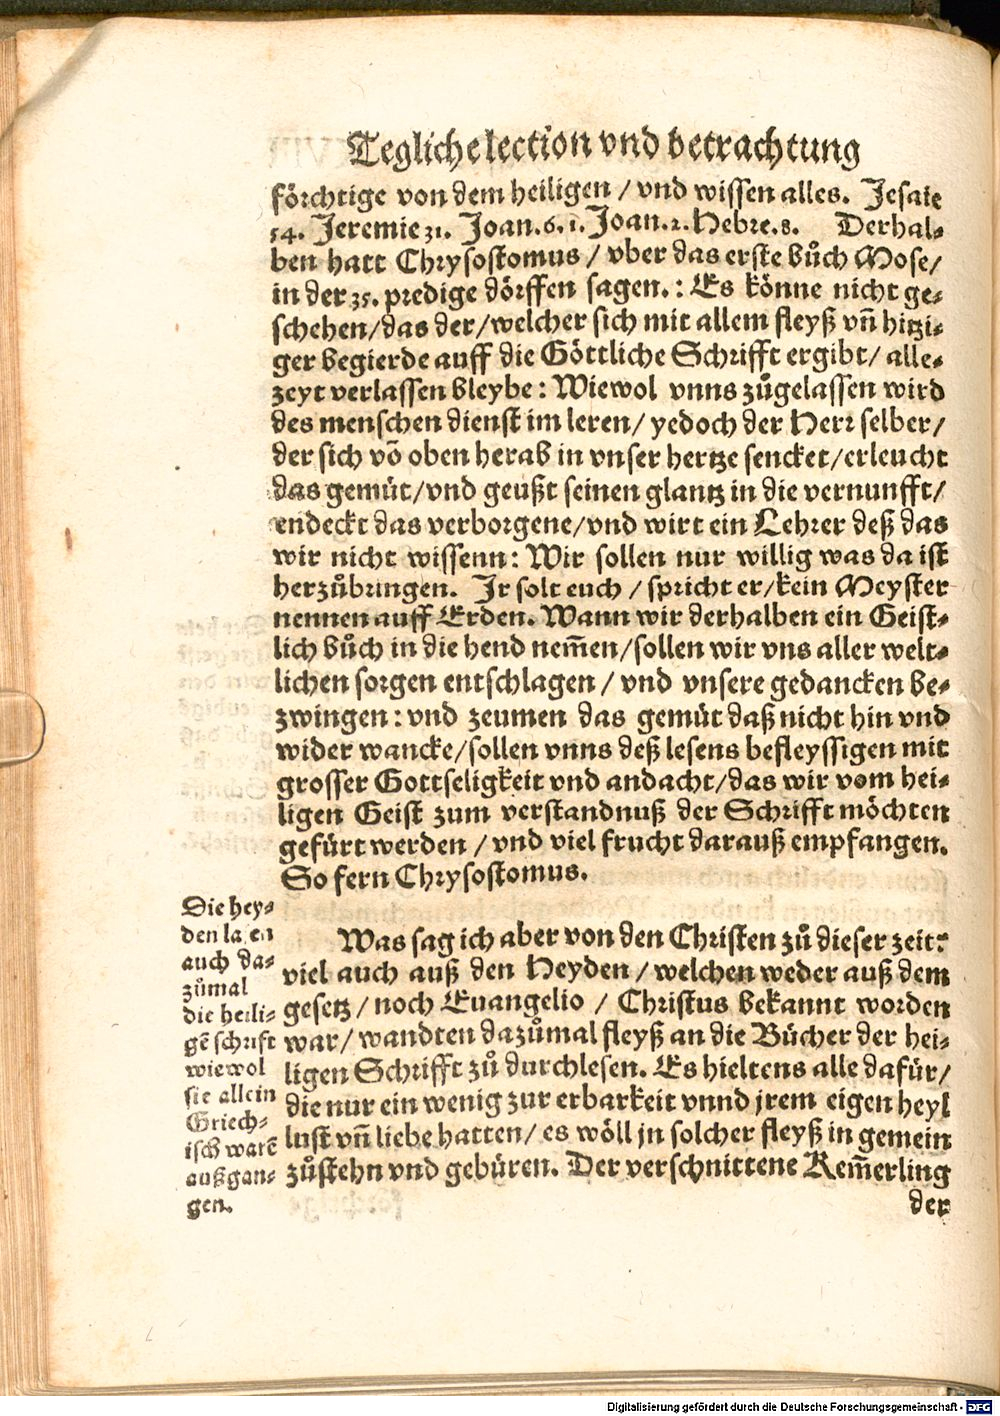 Tegliche lection vnd betrachtung
förchtige von dem heiligen / vnd wissen alles. Jesaie
54. Jeremie 31. Joan.6.1. Joan.2. Hebre.8. Derhal⸗
ben hatt Chrysostomus / vber das erste bůch Mose/
in der 35. predige dörffen sagen.: Es könne nicht ge⸗
schehen/das der/welcher sich mit allem fleyß vñ hitzi⸗
ger begierde auff die Göttliche Schrifft ergibt/ alle⸗
zeyt verlassen bleybe: Wiewol vnns zůgelassen wird
des menschen dienst im leren/ yedoch der Herr selber/
der sich võ oben herab in vnser hertze sencket/erleucht
das gemüt/vnd geußt seinen glantz in die vernunfft/
endeckt das verborgene/vnd wirt ein Lehrer deß das
wir nicht wissenn: Wir sollen nur willig was da ist
herzůbringen. Jr solt euch / spricht er/kein Meyster
nennen auff Erden. Wann wir derhalben ein Geist⸗
lich bůch in die hend nem̃en/sollen wir vns aller welt⸗
lichen sorgen entschlagen / vnd vnsere gedancken be⸗
zwingen: vnd zeumen das gemüt daß nicht hin vnd
wider wancke/sollen vnns deß lesens befleyssigen mit
grosser Gottseligkeit vnd andacht/das wir vom hei⸗
ligen Geist zum verstandnuß der Schrifft möchten
gefürt werden / vnd viel frucht darauß empfangen.
So fern Chrysostomus.
Die hey⸗
den la en
auch da⸗
zůmal
die heili⸗
gẽ schrift
wiewol
sie allein
Griech⸗
isch warẽ
außgan⸗
gen.
Was sag ich aber von den Christen zů dieser zeit?
viel auch auß den Heyden / welchen weder auß dem
gesetz / noch Euangelio / Christus bekannt worden
war/ wandten dazůmal fleyß an die Bücher der hei⸗
ligen Schrifft zů durchlesen. Es hieltens alle dafür/
die nur ein wenig zur erbarkeit vnnd jrem eigen heyl
lust vñ liebe hatten/ es wöll jn solcher fleyß in gemein
zůstehn vnd gebüren. Der verschnittene Kem̃erling
der
Digitalisierung gefördert durch die Deutsche Forschungsgemeinschaft - DFG